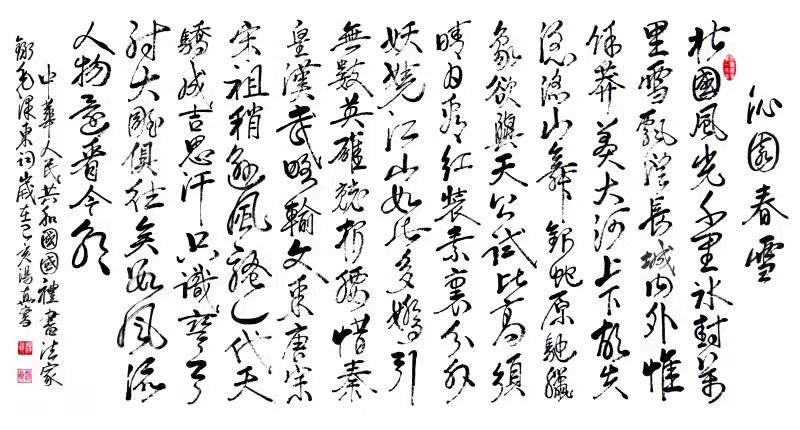 沁園春雪
北國風光千里冰封萬
里雪飄望長城內外惟
餘莽莽大河上下頓失
滔滔山舞銀蛇原馳臘
象欲與天公試比高須
晴日看紅裝素裹分外
妖嬈江山如此多嬌引
無數英雄競折腰惜秦
皇漢武略輸文采唐宗
宋祖稍遜風騷一代天
驕成吉思汗只識彎弓
射大雕俱往矣數風流
人物還看今朝
中華人民共和國國禮書法家
錄毛澤東詞歲在己亥書